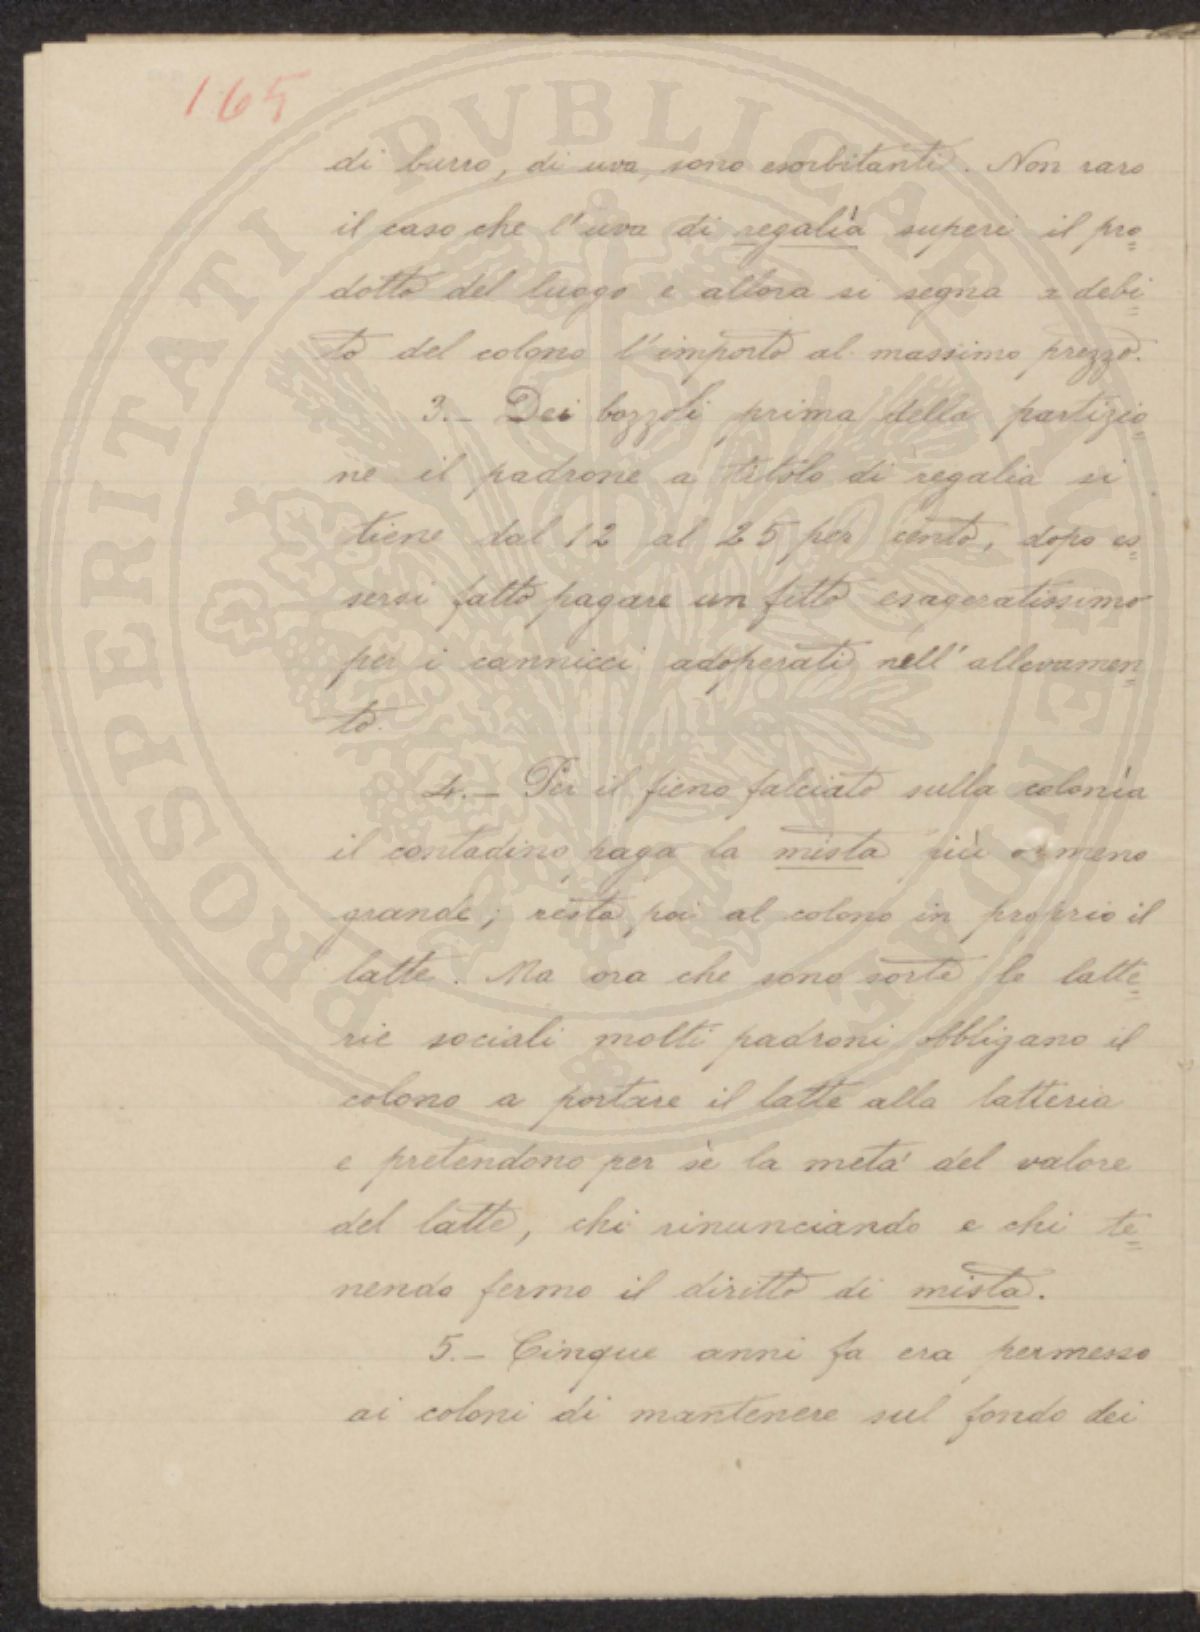 165
di burro, di uva, sono esorbitanti. Non raro
il caso che l'uva di regalìa superi il pro=
dotto del luogo e allora si segna a debi=
to del colono l'importo al massimo prezzo.
3.- Dei bozzoli prima della partizio=
ne il padrone a titolo di regalia si
tiene dal 12 al 25 per cento, dopo es=
sersi fatto pagare un fitto esageratissimo
per i cannicci adoperati nell'allevamen=
to.
4.- Per il fieno falciato sulla colonìa
il contadino paga la mista più o meno
grande; resta poi al colono in proprio il
latte. Ma ora che sono sorte le latte=
rie sociali molti padroni obbligano il
colono a portare il latte alla latteria
e pretendono per sè la metà del valore
del latte, chi rinunciando e chi te=
nendo fermo il diritto di mista.
5.- Cinque anni fa era permesso
ai coloni di mantenere sul fondo dei
PROSPERITATI PVBLICAE AVGENDAE